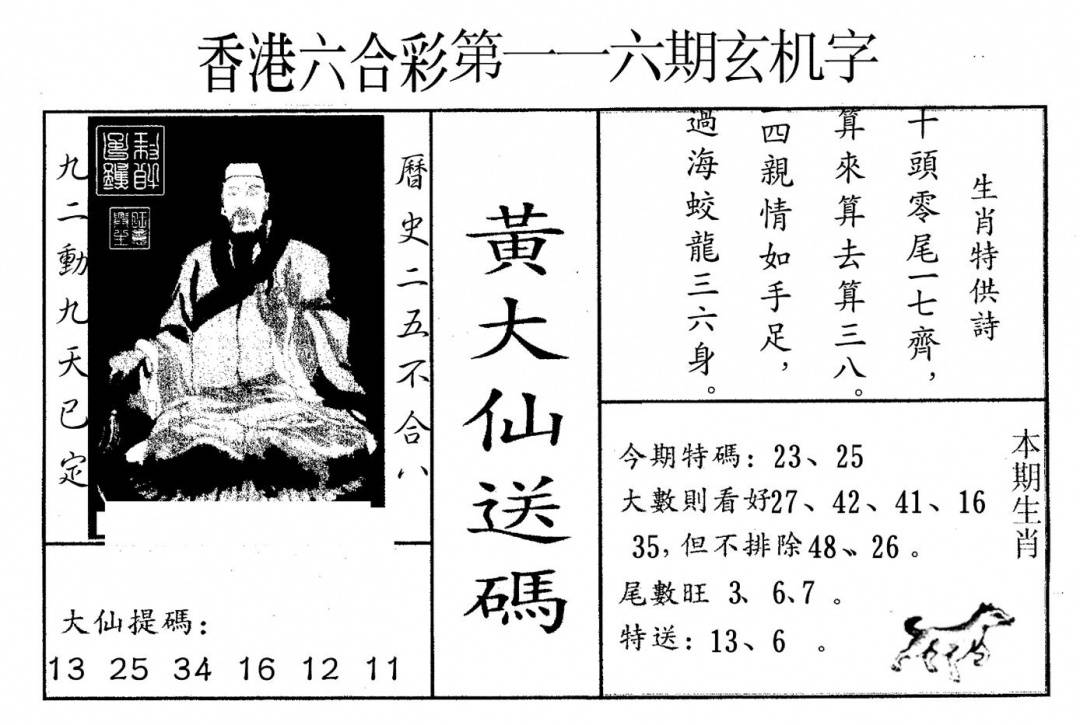 香港六合彩第一一六期玄机字
生肖特供詩
十頭零尾一七齊，
算來算去算三八。
四親情如手足，
過海蛟龍三六身。
黃大仙送碼
曆史二五不合八
九二動九天已定
大仙提碼：
13 25 34 16 12 11
本期生肖
今期特碼：23、25
大數則看好27、42、41、16
35，但不排除48、26。
尾數旺 3、6、7。
特送：13、6。